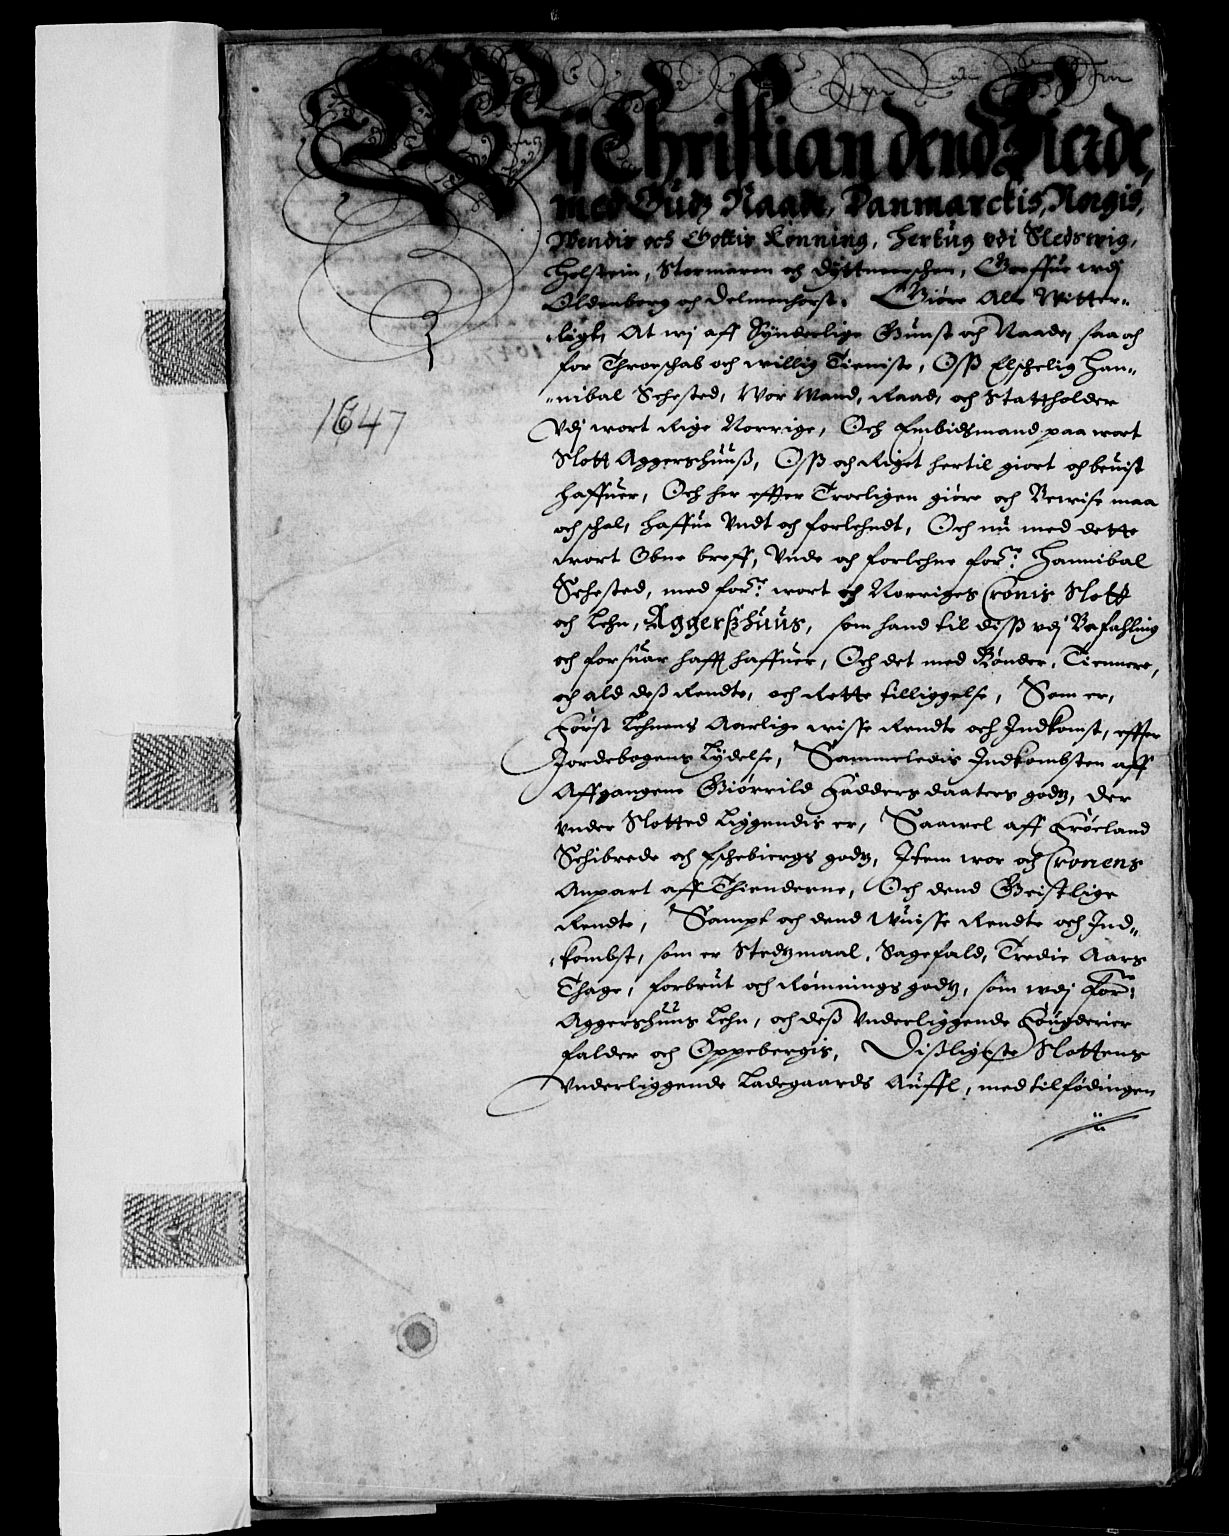 Wij Christian dend Fierde,
med Gudz Naade, Danmarckis, Norgis,
Wendis och Gottis Konning, Hertug vdi Sledswig,
Holstein, Stormaren och Dyttmerschen, Greffue vdj
Oldenborg och Delmenhorst. Giøre Alle Witter-
ligt, At wj aff Synderlige Gunst och Naade, saa och
for Throeschab och willig Tieniste, Oss Elschelig Han-
nibal Sehested, Wor Mand, Raad, och Stattholder
Vdj wort Rige Norrige, Och Embidsmand paa wort
Slott Aggershuuss, Oss och Riget hertil giort och beuist
haffuer, Och her effter Troeligen giøre och Bewise maa
och schal, haffue Vndt och forlehndt, Och nu med dette
wort Obne breff, Vnde och forlehne for:ne Hannibal
Sehested, med for:ne wort och Norriges Cronis Slott
och Lehn, Aggerszhuus, som hand til diss vdj Befahling
och forsuar hafft haffuer, Och det med Bønder, Tiennere,
och ald dess Rendte, och Rette tilliggelse, Som er,
Først Lehnens Aarlige wisse Rendte och Indkomst, effter
Jordebogens Lydelse, Sammeledis Indkombsten aff
Affgangene Giørrild Fadders daaters godtz, der
vnder Slotted Liggendis er, Saawel aff Frøeland
Schibrede och Eschebiergs godtz, Item wor och Cronens
Anpart aff Thienderne, Och dend Geistlige
Rendte, Sampt och dend Wuisse Rendte och Ind-
kombst, som er Stedtzmaal, Sagefald, Tredie Aars
Thage, forbrut och Rømnings godtz, som wdj For:ne
Aggershuus Lehn, och dess Vnderliggende Fougderier
falder och Oppebergis, Dissligeste Slottens
Vnderliggende Ladegaards Auffl, med tilfødingen
1647